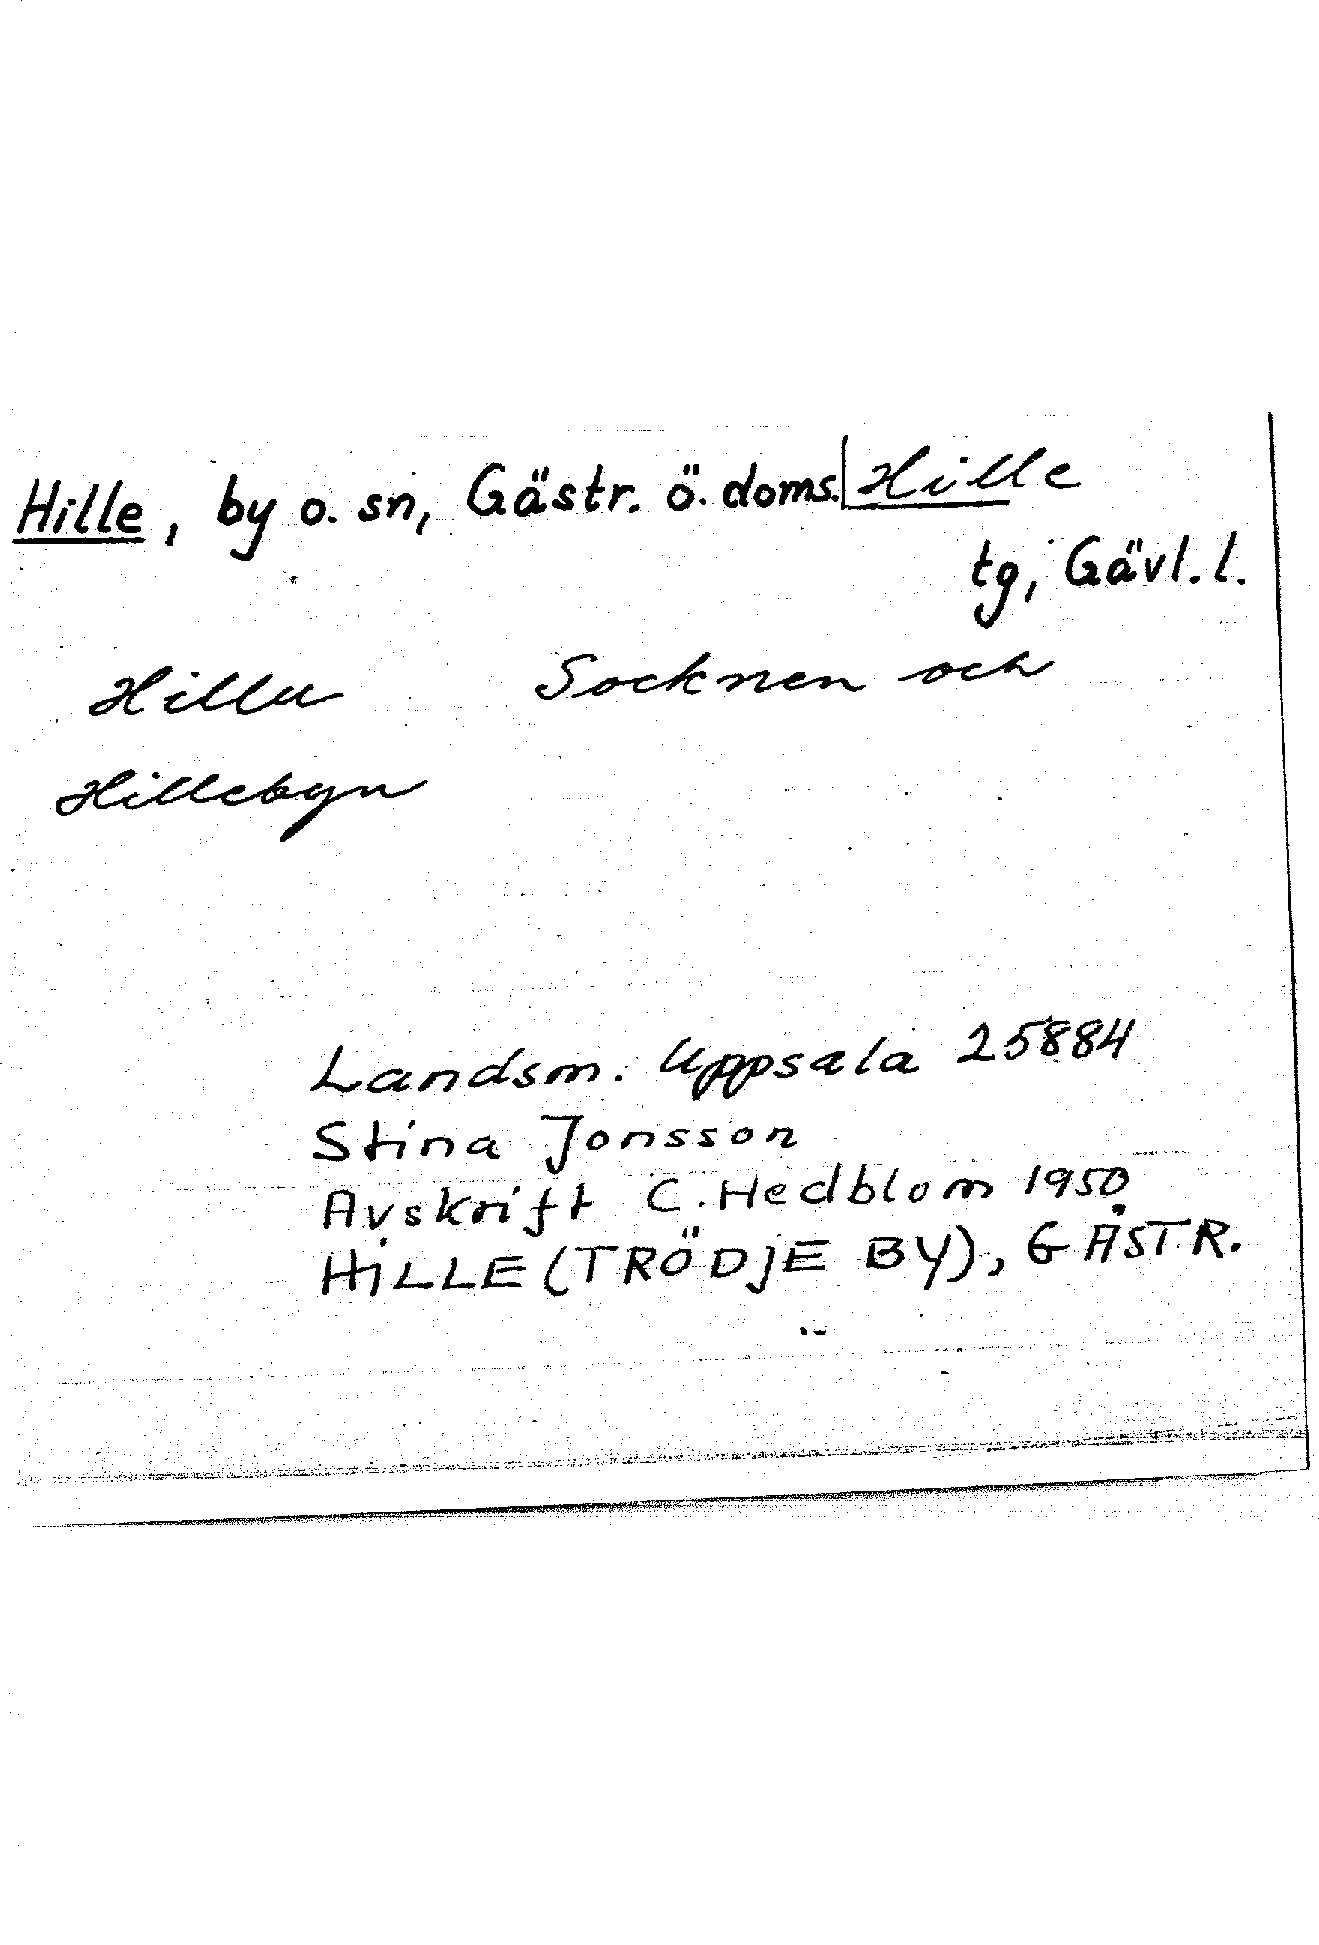 Hille, by o. sn, Gästr. ö. doms. Hille
tg, Gävl. l.
Hillu Socknen och
Hillebyn
Landsm. Uppsala 25884
Stina Jonsson
Avskrift C. Hedblom 1950
HILLE (TRÖDJE BY), GÄSTR.